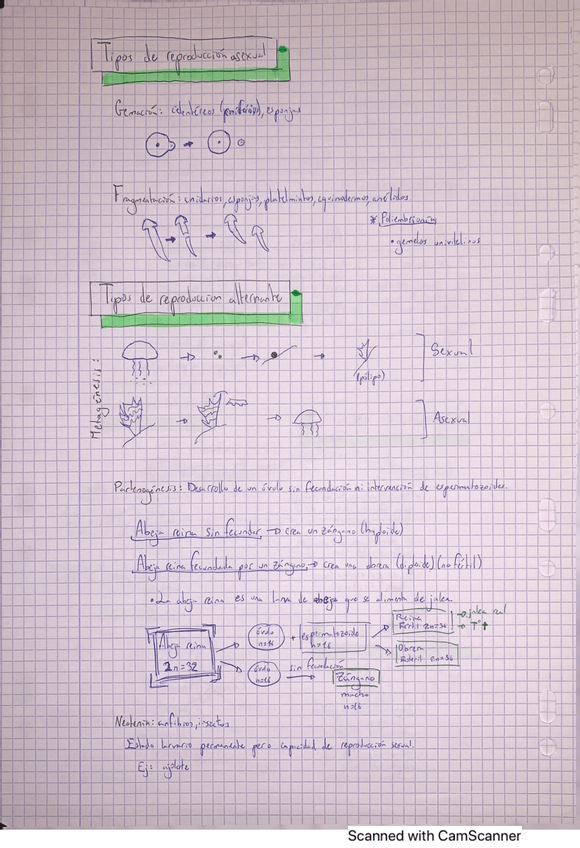 Tipos de reproducción asexual
Gemación: celentéreos (poríferos), esponjas
Fragmentación: unidarios, esponjas, platelmintos, equinodermos, anélidos
* Poliembrionía
• gemelos univitelinos
Tipos de reproduccion alternante
Metagénesis:
(pólipo)
Sexual
Asexual
Partenogénesis: Desarrollo de un óvulo sin fecundación ni intervención de espermatozoides.
Abeja reina sin fecundar → crea un zángano (haploide)
Abeja reina fecundada por un zángano → crea una obrera (diploide) (no fértil)
• La abeja reina es una larva de abeja que se alimenta de jalea.
Abeja reina
2n=32
óvulo
n=16
+
espermatozoide
n=16
Reina
→ jalea real
→ Tª ↑
Obrera
óvulo
n=16
sin fecundación
Zángano
macho
n=16
Neotenia: anfibios, insectos
Estado larvario permanente pero capacidad de reproducción sexual.
Ej: ajolote
Scanned with CamScanner